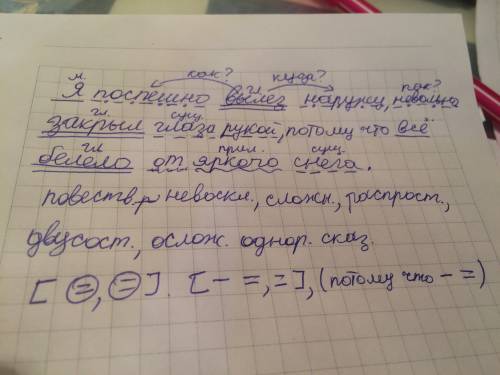 как? куда?
м. гл. как?
Я поспешно вылез наружу, невольно
гл. сущ.
закрыл глаза рукой, потому что всё
гл прил. сущ.
белело от яркого снега.
повеств., невоскл., сложн., распрост.,
двусост., ослож. однор. сказ.
[ =, = ]. [ - =, = ], (потому что - =)